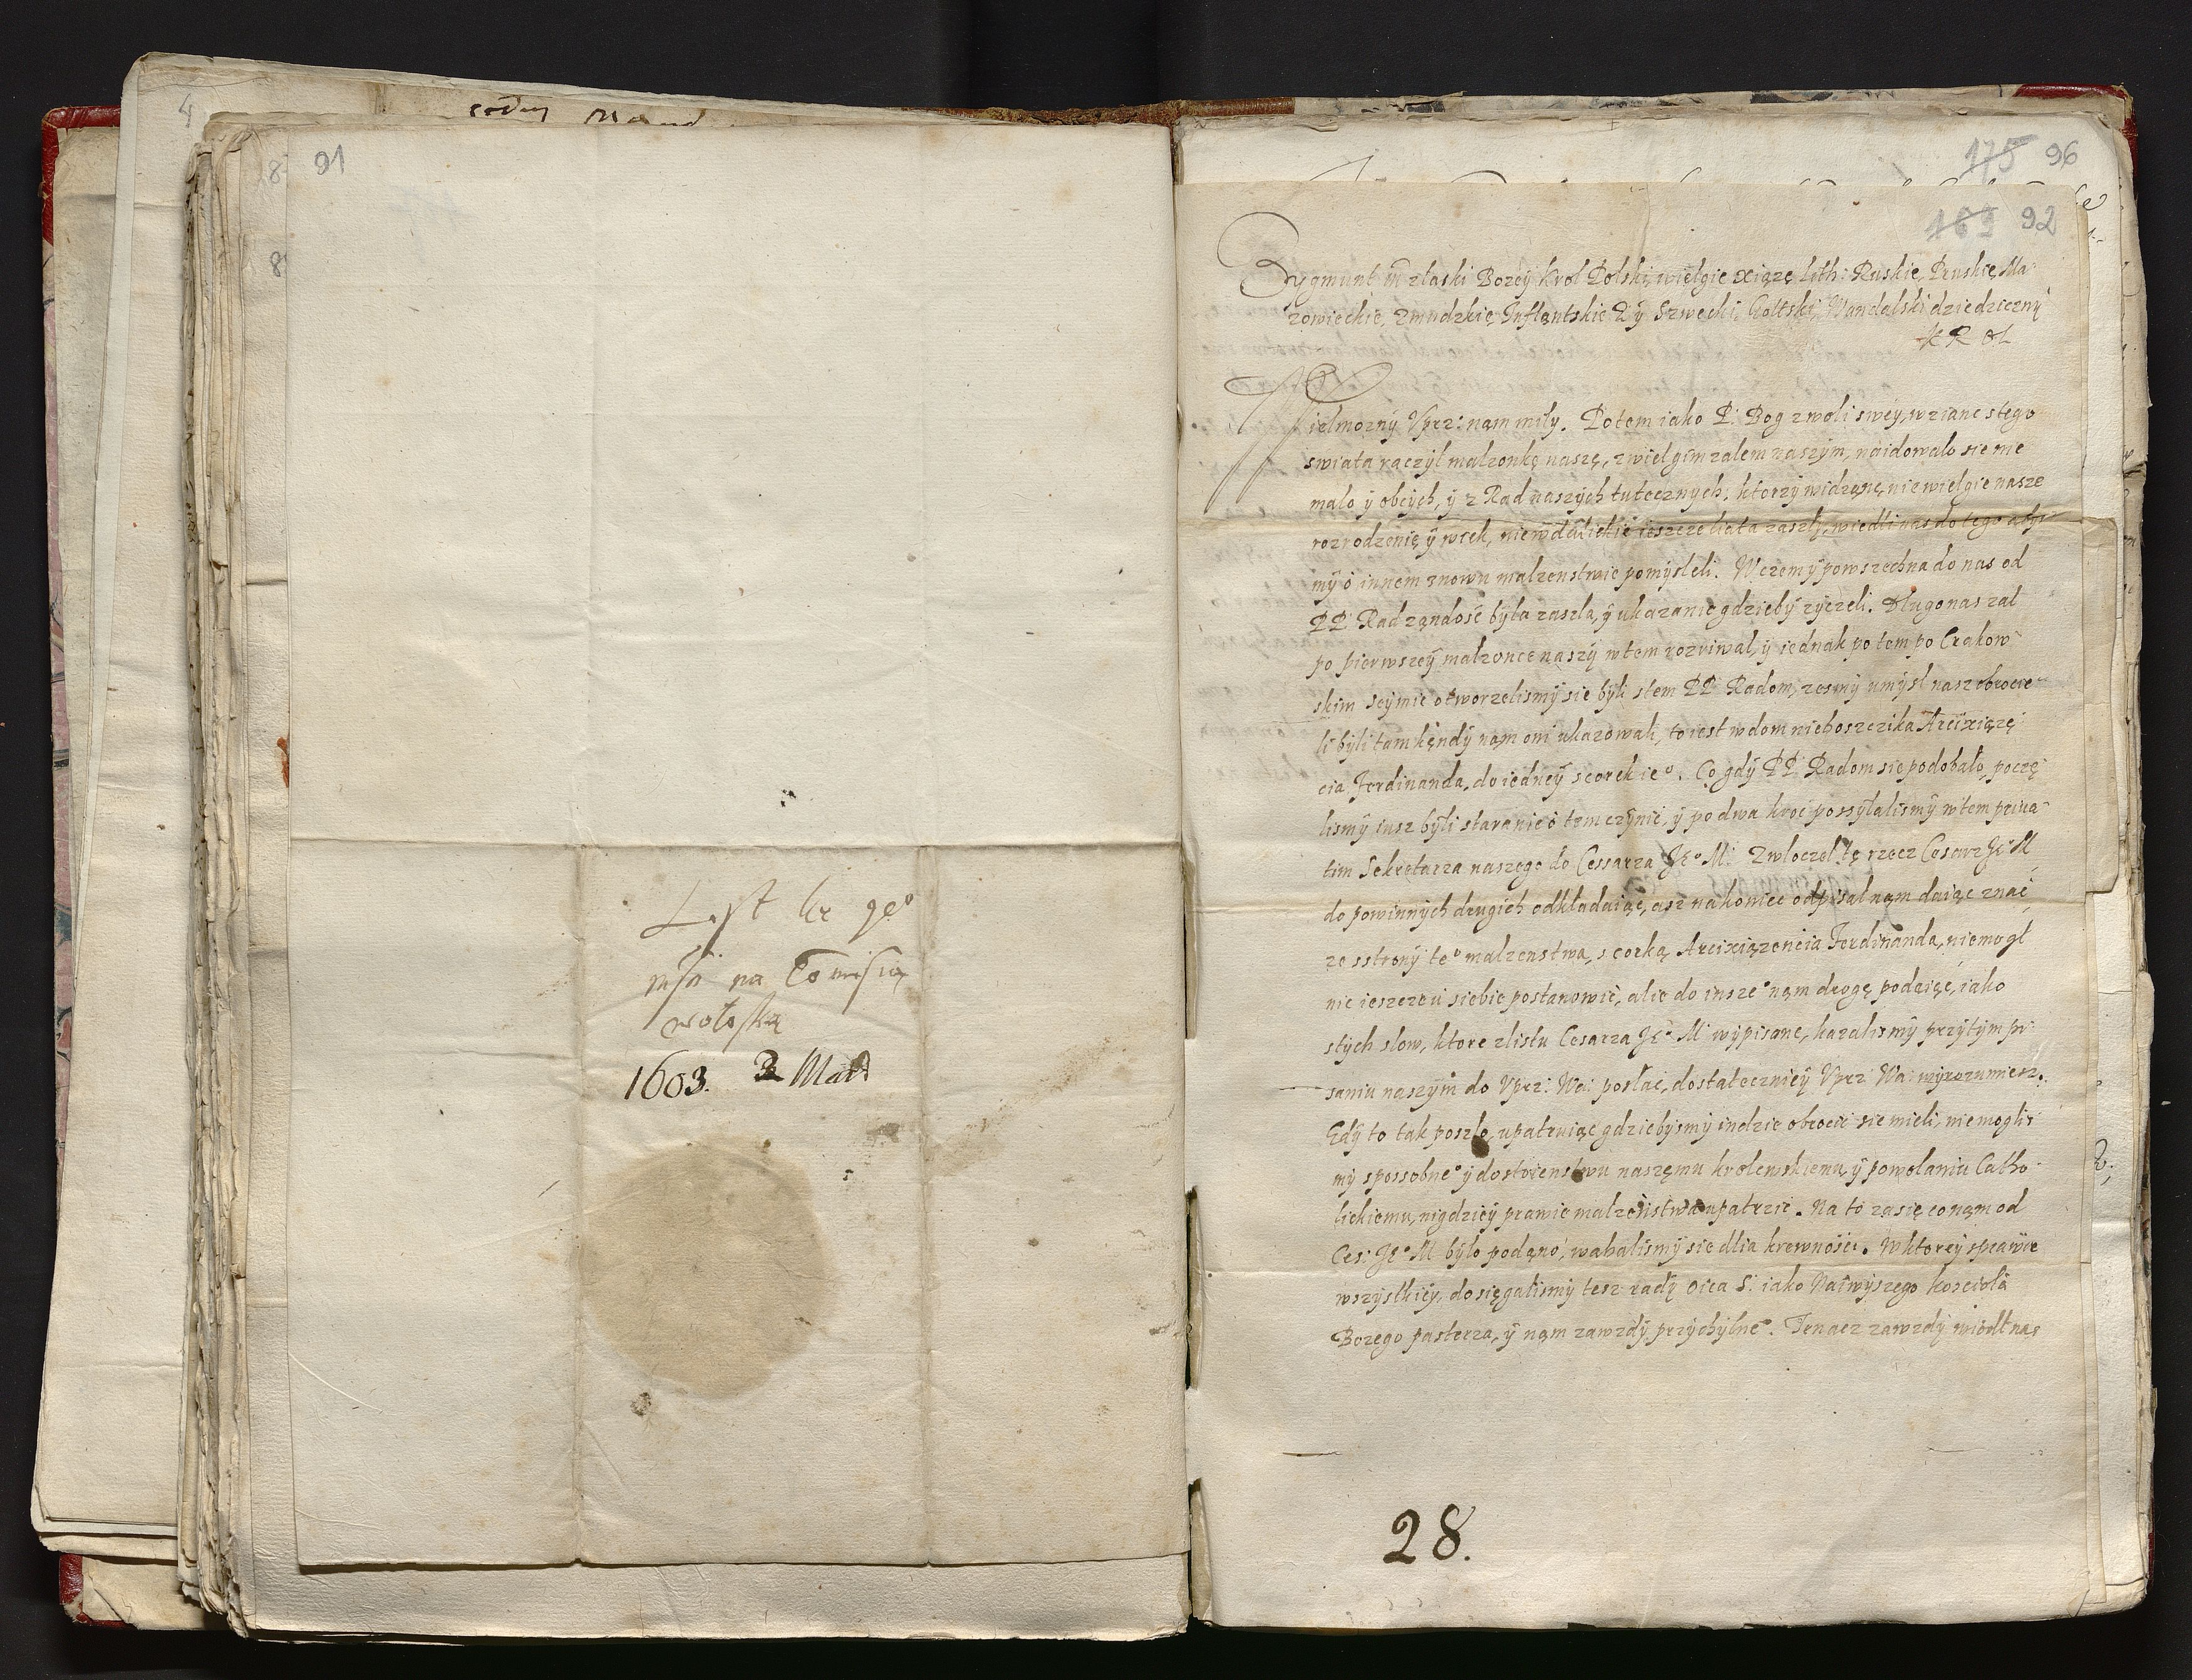 4
91
List kr ge°
mſci na Comiſią
wołoſką
1603. 3 Mart
175 96
169 92
Zygmunt III z łaski Bozey Krol Polski, wielgie xiąze lith: Ruskie, Pruskie, Ma-
zowieckie, Zmudzkie, Inflantskie &ć y Szwecki, Gottski, Wandalski dziedziczny
KROL
Wielmozny Uprz: nam miły. Potem iako P. Bog z woli swey, wziąnc stego
swiata raczył malzonkę naszę, z wielgim zalem naszym, naidowalo sie nie
malo y obcych, y z Rad naszych tutecznych, ktorzy widząnc, nie wielgie nasze
rozrodzenie y wiek, nie w dalekie ieszcze liata zaszły, wiedli nas do tego abys-
my o innem znowu malzenstwie pomysleli. W czemy powszechna do nas od
PP Rad ządość była zaszla, y ukazanie gdzieby zyczeli. Długo nas zal
po pierwszey malzonce naszy w tem rozriwal, y iednak potem po Crakow-
skim Seymie otworzelismy sie byli stem PP Radom, zesmy umysl nasz obrocie-
li byli tam kęndy nąm oni ukazowali, to iest w dom nieboszczika Arcixiązę-
cia Ferdinanda, do iedney s corek ie°. Co gdy PP Radom sie podobało, poczę-
lismy iusz byli staranie o tem czynić, y po dwa kroć possyłalismy w tem priua-
tim Sekretarza naszego do Cessarza Je° M. Zwłoczel tę rzecz Cesarz Je° M
do powinnych drugich odkładaiąc, asz nakoniec odpisał nąm daiąc znać
ze sstrony te° malzenstwa, s corką Arcixiązencia Ferdinanda, niemogł
nic ieszcze u siebie postanowić, alie do insze° nąm drogę podaiąc, iako
stych slow, ktore z listu Cesarza Je° M wypisane, kazalismy przytym pi-
saniu naszym do Uprz: Wa: posłać, dostateczniey Uprz: Wa: wyrozumiesz.
Gdy to tak poszlo, upatruiąc gdziebysmy indzie obrocic sie mieli, niemoglis-
my spossobne° y dostoienstwu naszęmu krolewskiemu, y powolaniu Catho-
lickiemu, nigdziey prawie malzeństwa upatrzić. Na to zasię co nąm od
Ces: Je° M było podąno, wahalismy sie dlia krewnośći. W ktorey sprawie
wszystkiey, dosięgalismy tesz rady oica S: iako Naiwyszego kosciola
Bozęgo pasterza, y nąm zawzdy przychylne°. Ten acz zawzdy wiedł nas
28.